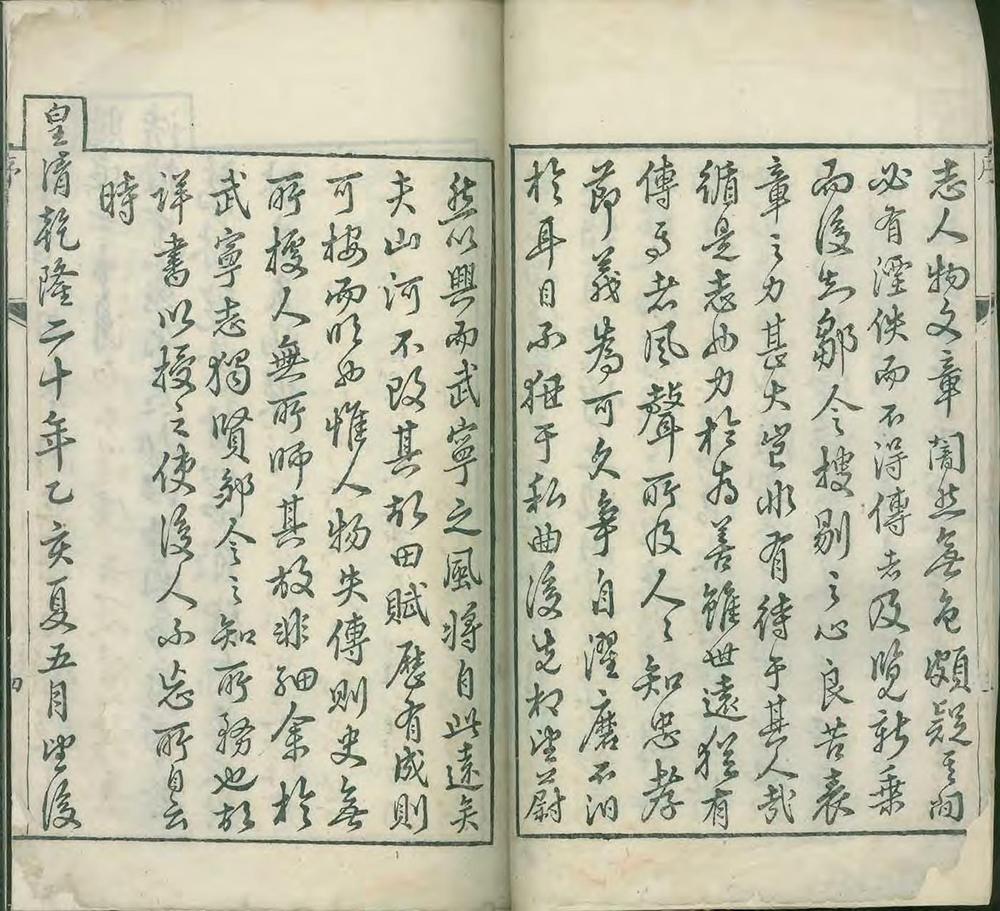 志人物文章闇然無色頗疑其間
必有湮佚而不得傳者及覽新乘
而後知鄒令搜剔之心良苦表
章之力甚大豈非有待于其人哉
循是志也力於為善雖世遠猶有
傳焉者風聲所及人人知忠孝
節義為可久爭自濯磨不汩
於耳目不狃于私曲後先相望蔚
然以興而武寧之風將自此遠矣
夫山河不改其故田賦歷有成則
可按而明也惟人物失傳則史無
所援人無所師其故非細余於
武寧志獨賢鄒令之知所務也故
詳書以授之使後人不忘所自云
時
皇清乾隆二十年乙亥夏五月望後
序
四